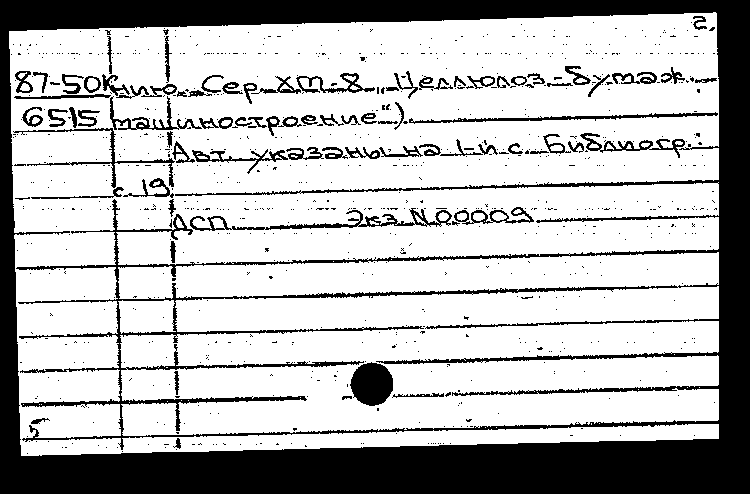 2.
87-50К нию. Сер. ХМ-8 „Целлюлоз.-бумаж.
6515 машиностроение").
Авт. указаны на 1-й с. Библиогр.:
с. 19
ДСП Экз. N00009
5